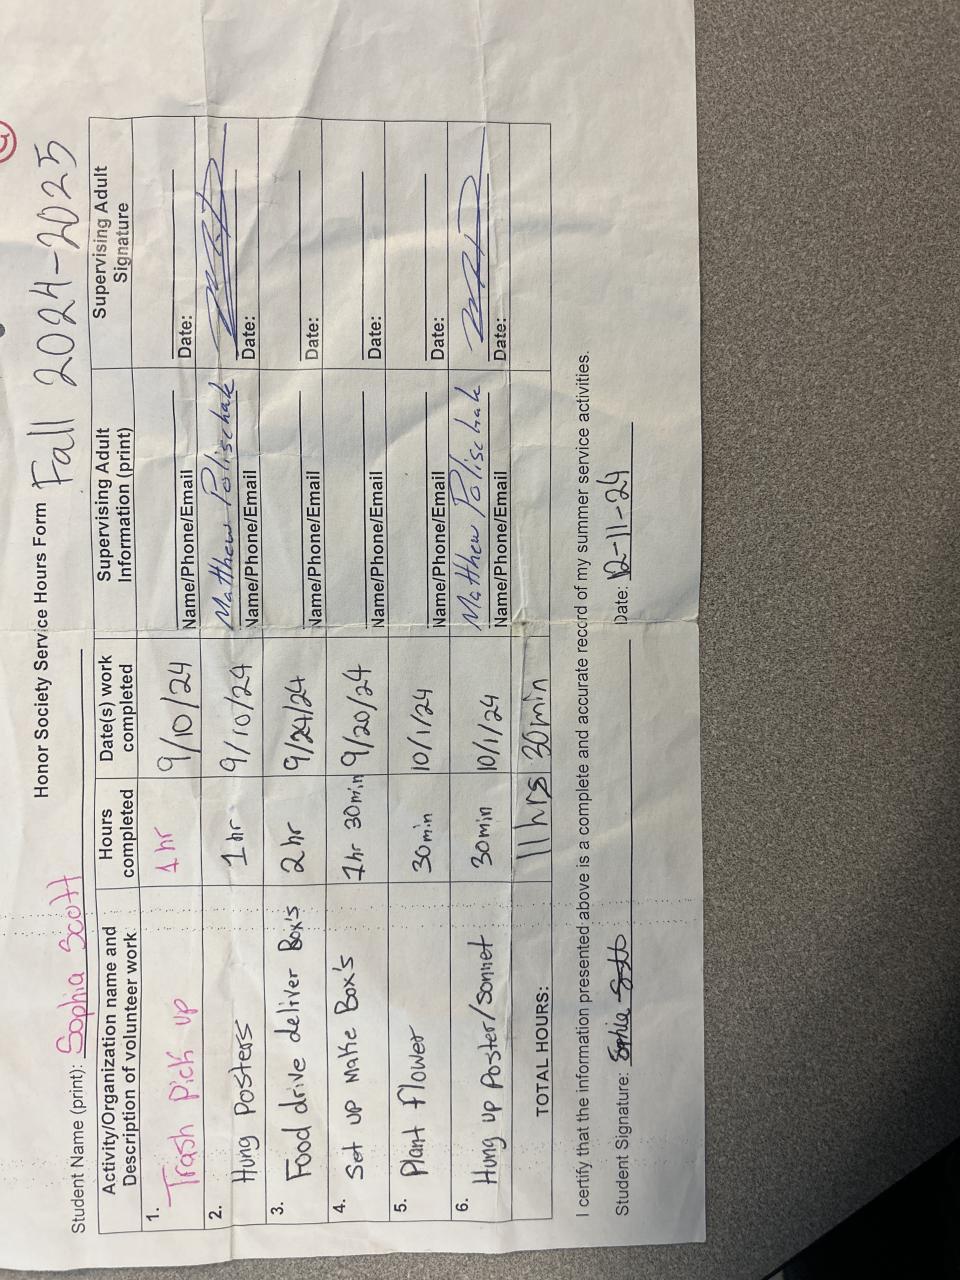 Honor Society Service Hours Form Fall 2024-2025
Student Name (print): Sophia Scott
Activity/Organization name and Description of volunteer work
Hours completed
Date(s) work completed
Supervising Adult Information (print)
Supervising Adult Signature
1. Trash pick up
1 hr
9/10/24
Name/Phone/Email
Date:
2. Hung Posters
1 hr
9/10/24
Matthew Polischak
Name/Phone/Email
Date:
3. Food drive deliver Box's
2 hr
9/24/24
Name/Phone/Email
Date:
4. Set up Make Box's
1 hr 30 min
9/20/24
Name/Phone/Email
Date:
5. Plant flower
30 min
10/1/24
Name/Phone/Email
Date:
6. Hung up Poster/Sonnet
30 min
10/1/24
Matthew Polischak
Name/Phone/Email
Date:
TOTAL HOURS: 11 hrs 30 min
I certify that the information presented above is a complete and accurate record of my summer service activities.
Student Signature: Sophia Scott Date: 12-11-24